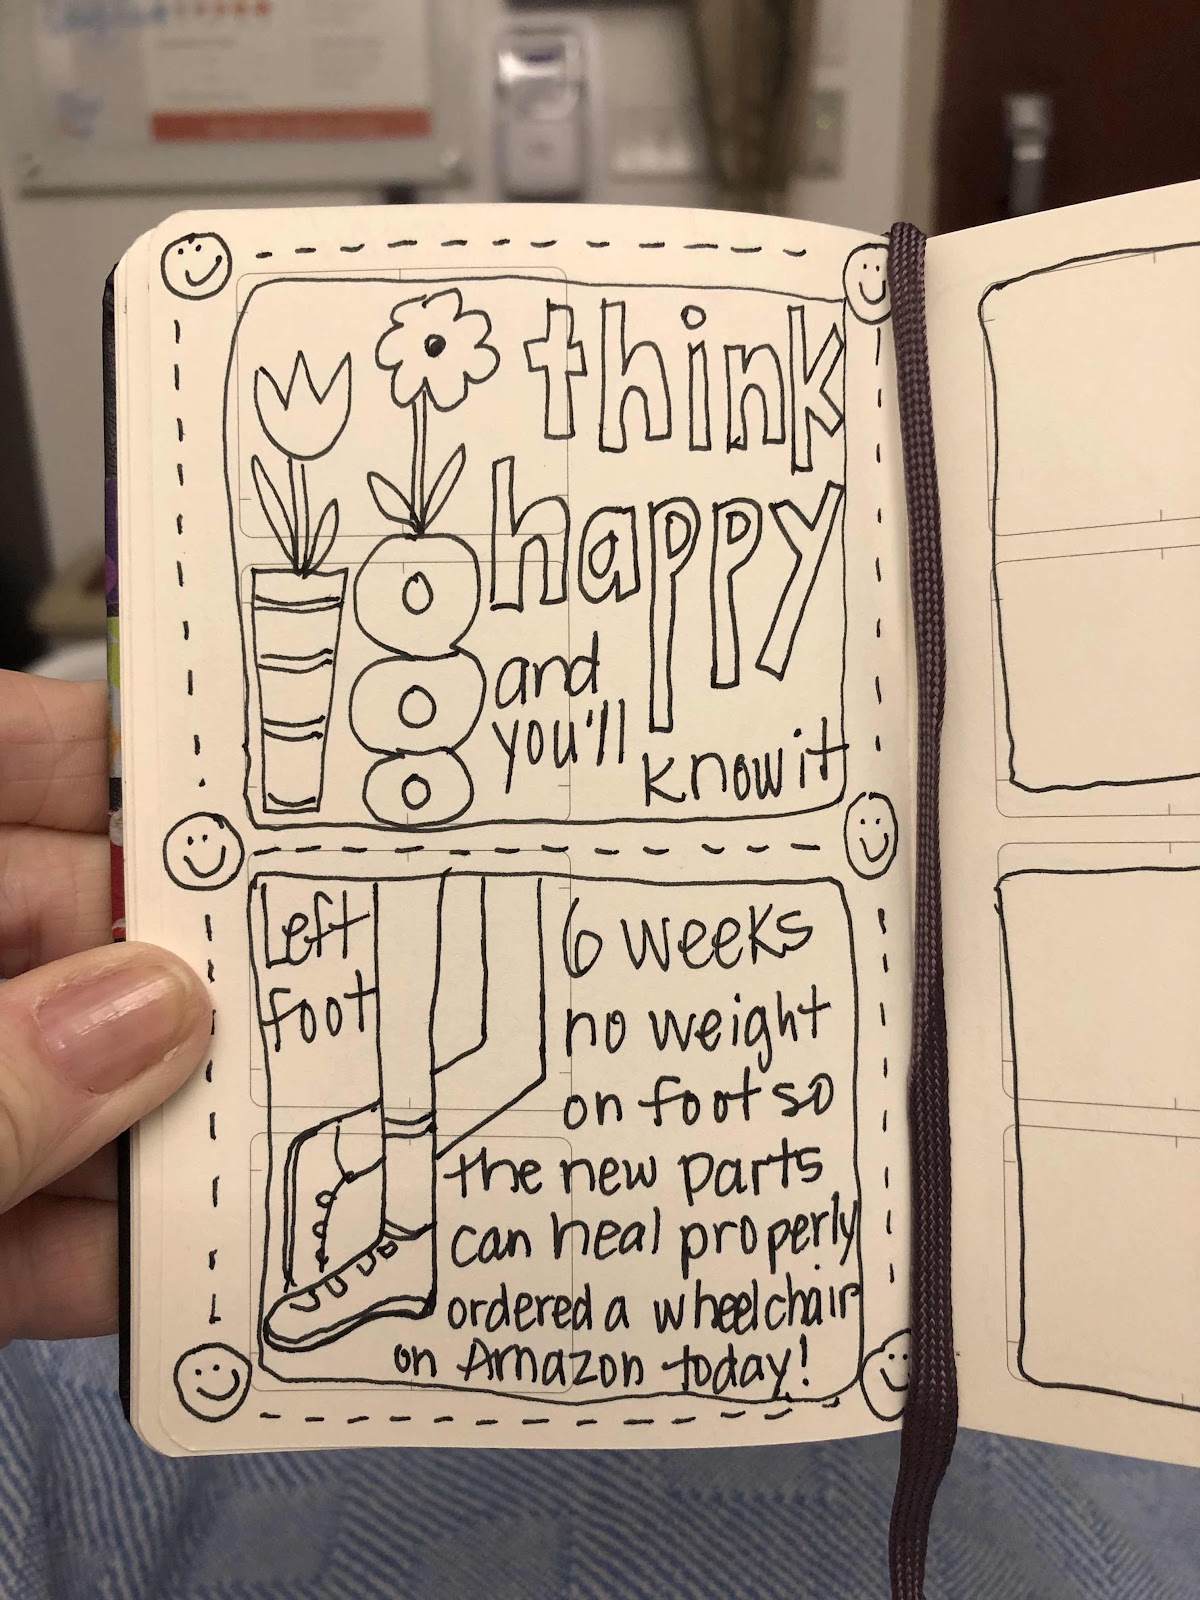 think
happy
and
you'll
know it
Left
foot
6 weeks
no weight
on foot so
the new parts
can heal properly
ordered a wheelchair
on Amazon today!